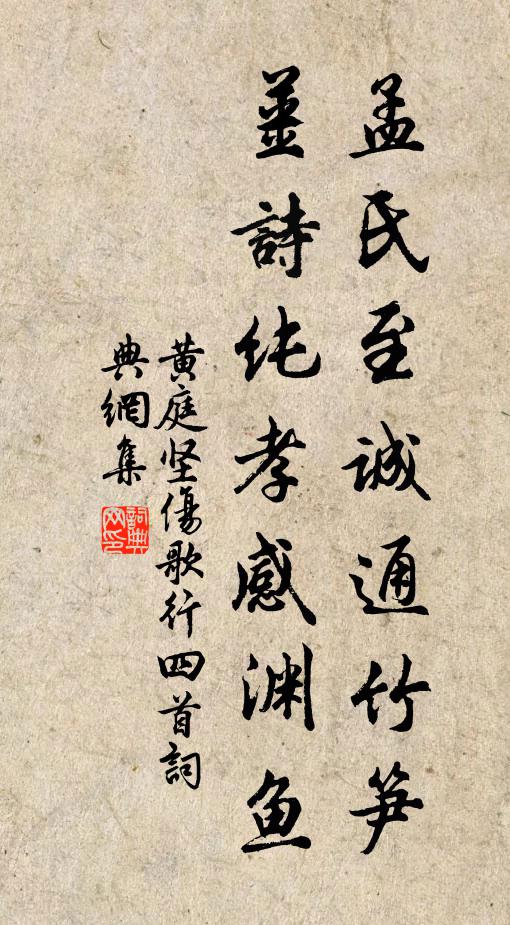 孟氏至诚通竹笋
姜詩纯孝感渊鱼
黄庭坚傷歌行四首詞
典網集
詞典网印